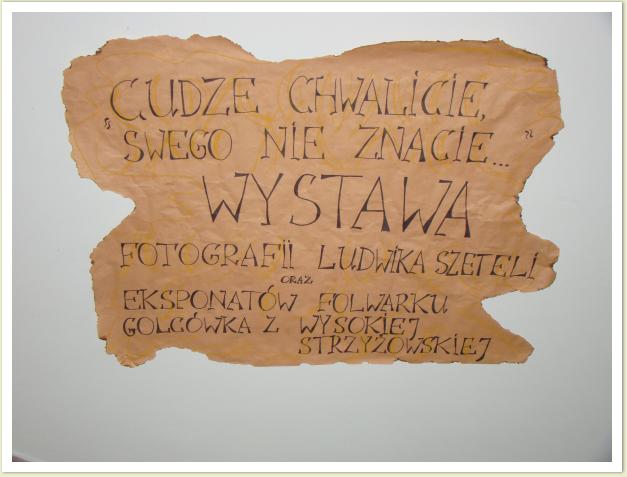 „CUDZE CHWALICIE,
SWEGO NIE ZNACIE..."
WYSTAWA
FOTOGRAFII LUDWIKA SZETELI
ORAZ
EKSPONATÓW FOLWARKU
GOLCÓWKA Z WYSOKIEJ
STRZYŻOWSKIEJ